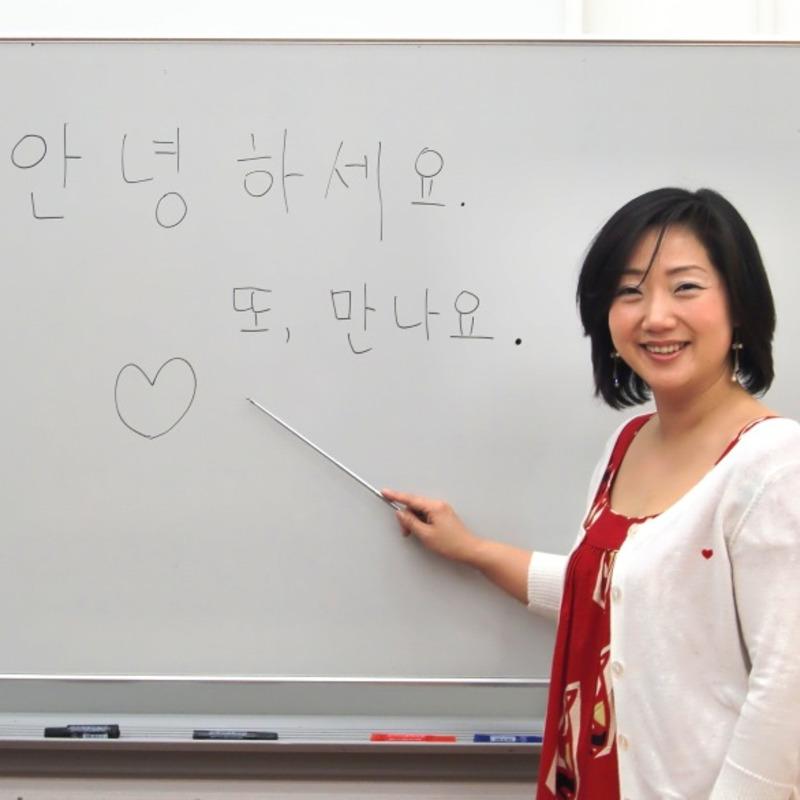 안녕하세요.
또, 만나요.